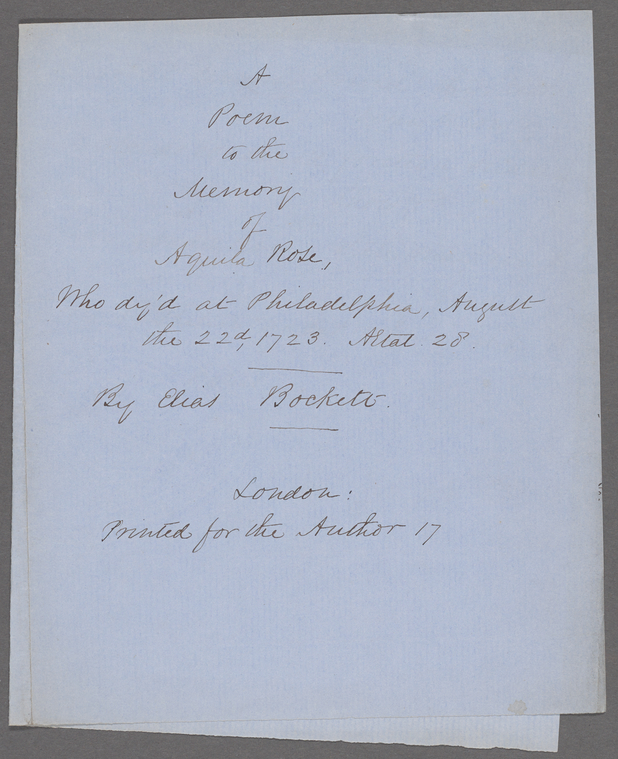 A
Poem
to the
Memory
of
Aquila Rose,
Who dy'd at Philadelphia, August
the 22d, 1723. Ætat. 28.
By Elias Bockett.
London:
Printed for the Author 17